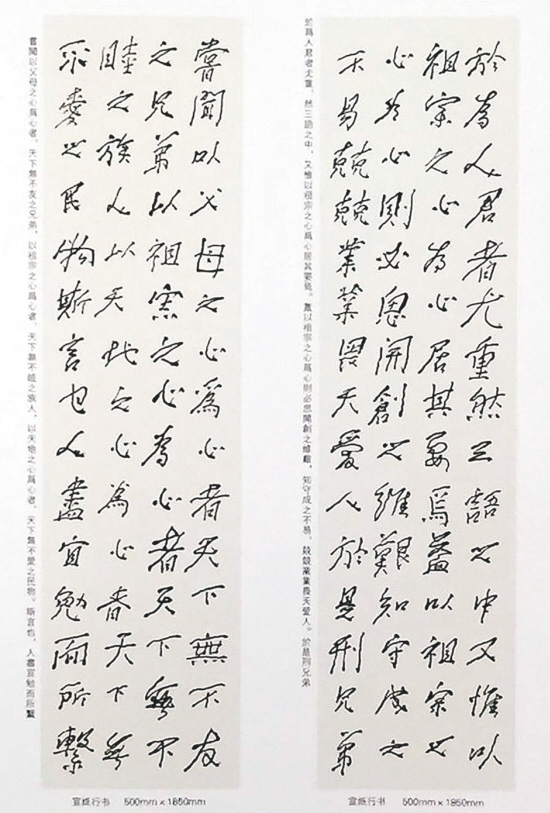 嘗聞以父母之心爲心者天下無不友
之兄弟以祖宗之心为心者天下無不
睦之族人以天地之心為心者天下無
不愛之民物斯言也人盡宜勉而所繫
嘗聞以父母之心爲心者，天下無不友之兄弟，以祖宗之心爲心者，天下無不睦之族人，以天地之心爲心者，天下無不愛之民物。斯言也，人盡宜勉而所繫
宣紙行书 500mm×1850mm
於为人君者尤重然三語之中又惟以
祖宗之心为心居其要焉蓋以祖宗之
心为心則必思開創之維艱知守成之
不易兢兢業業畏天愛人於是刑兄弟
於爲人君者尤重。然三語之中，又惟以祖宗之心爲心居其要焉。蓋以祖宗之心爲心則必思開創之維艱，知守成之不易，兢兢業業畏天愛人。於是刑兄弟
宣紙行书 500mm×1850mm